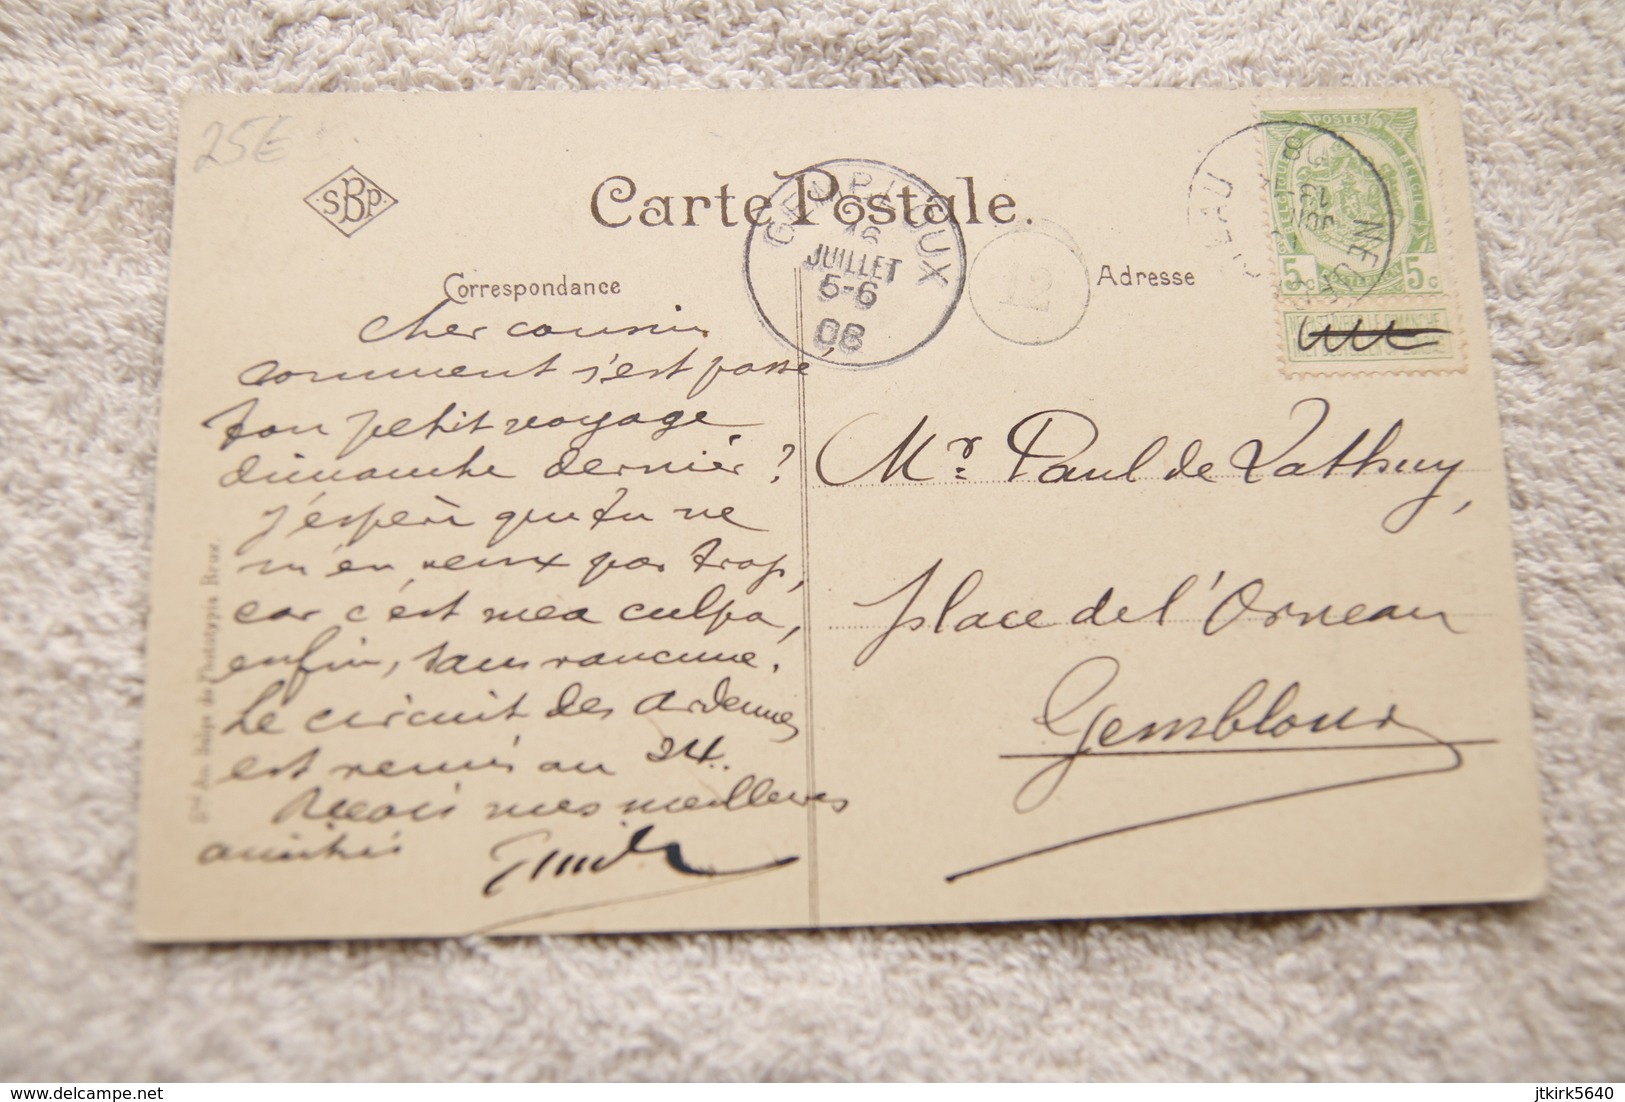 25€
SBP
Carte Postale.
GEMBLOUX
16
JUILLET
5-6
08
12
Correspondance
Adresse
POSTES
5c 5c
NE PAS LIVRER LE DIMANCHE
cher cousin
comment s'est passé
ton petit voyage
dimanche dernier ?
j'espère que tu ne
m'en veux pas trop,
car c'est mea culpa,
enfin, sans rancune.
Le circuit des Ardennes
est remis au 24.
Reçois mes meilleures
amitiés
Mr. Paul de Lathuy,
place de l'Orneau
Gembloux
Sté An. Belge de Phototypie Brux.
delcampe.net
jtkirk5640